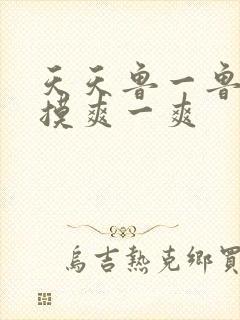 天天鲁一鲁
摸爽一爽
烏吉熱克鄉買